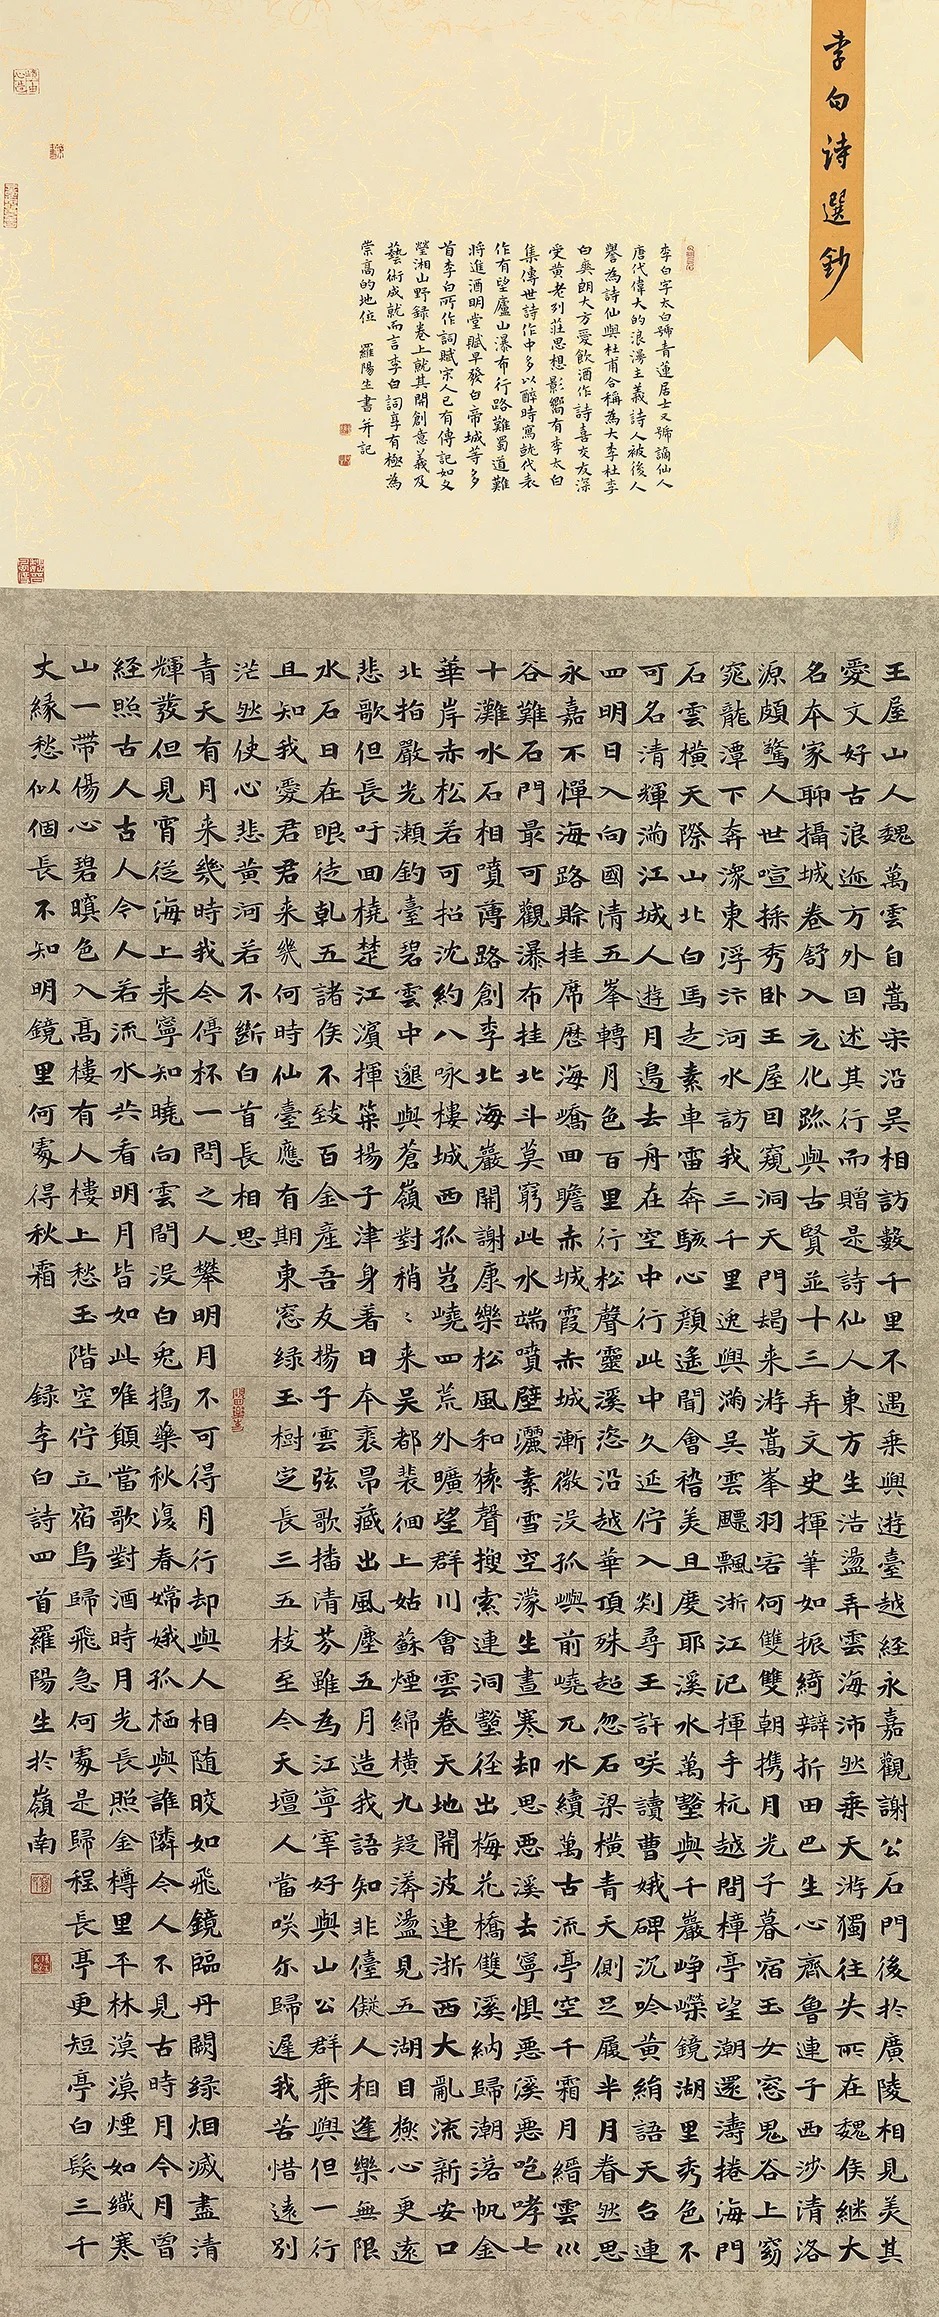 李白詩選鈔
李白字太白號青蓮居士又號謫仙人
唐代偉大的浪漫主義詩人被後人
譽為詩仙與杜甫合稱為大李杜李
白爽朗大方愛飲酒作詩喜交友深
受黃老列莊思想影響有李太白
集傳世詩作中多以醉時寫就代表
作有望廬山瀑布行路難蜀道難
將進酒明堂賦早發白帝城等多
首李白所作詞賦宋人已有傳記如文
瑩湘山野録卷上就其開創意義及
藝術成就而言李白詞享有極為
崇高的地位 羅陽生書并記
王屋山人魏萬雲自嵩宋沿吳相訪數千里不遇乘興遊臺越経永嘉觀謝公石門後於廣陵相見美其
愛文好古浪迹方外因述其行而贈是詩仙人東方生浩盪弄雲海沛然乘天游獨往失所在魏侯継大
名本家聊攝城卷舒入元化跡與古賢並十三弄文史揮筆如振綺辯折田巴生心齊魯連子西涉清洛
源頗驚人世喧採秀卧王屋因窺洞天門朅来游嵩峯羽客何雙雙朝携月光子暮宿玉女窓鬼谷上窈
窕龍潭下奔潨東浮汴河水訪我三千里逸興滿吳雲飄飄浙江汜揮手杭越間樟亭望潮還濤捲海門
石雲横天際山北白馬走素車雷奔駭心顏遙聞會稽美且度耶溪水萬壑與千巖崢嶸鏡湖里秀色不
可名清輝滿江城人遊月邊去舟在空中行此中久延佇入剡尋王許咲讀曹娥碑沉吟黃絹語天台連
四明日入向國清五峯轉月色百里行松聲靈溪恣沿越華頂殊超忽石梁横青天側足履半月眷然思
永嘉不憚海路賒挂席歷海嶠回瞻赤城霞赤城漸微没孤嶼前嶢兀水續萬古流亭空千霜月縉雲川
谷難石門最可觀瀑布挂北斗莫窮此水端噴壁灑素雪空濛生晝寒却思惡溪去寧懼惡溪惡咆哮七
十灘水石相噴薄路創李北海巖開謝康樂松風和猿聲搜索連洞壑径出梅花橋雙溪納歸潮落帆金
華岸赤松若可招沈約八咏樓城西孤岧嶢四荒外曠望群川會雲卷天地開波連浙西大亂流新安口
北指嚴光瀬釣臺碧雲中邈與蒼嶺對稍〻来吳都裴徊上姑蘇煙綿横九疑漭盪見五湖目極心更遠
悲歌但長吁回橈楚江濱揮策揚子津身着日本裘昂藏出風塵五月造我語知非儓儗人相逢樂無限
水石日在眼徒乹五諸侯不致百金產吾友揚子雲弦歌播清芬雖為江寧宰好與山公群乘興但一行
且知我愛君君来幾何時仙臺應有期東窓緑玉樹定長三五枝至今天壇人當咲尔歸遲我苦惜遠別
茫然使心悲黃河若不斷白首長相思
青天有月来幾時我今停杯一問之人攀明月不可得月行却與人相随皎如飛鏡臨丹闕緑烟滅盡清
輝發但見宵從海上来寧知曉向雲間没白兔搗藥秋復春嫦娥孤栖與誰隣今人不見古時月今月曾
経照古人古人今人若流水共看明月皆如此唯願當歌對酒時月光長照金樽里平林漠漠煙如織寒
山一帶傷心碧瞑色入高樓有人樓上愁玉階空佇立宿鳥歸飛急何處是歸程長亭更短亭白髮三千
丈縁愁似個長不知明鏡里何處得秋霜 録李白詩四首羅陽生於嶺南